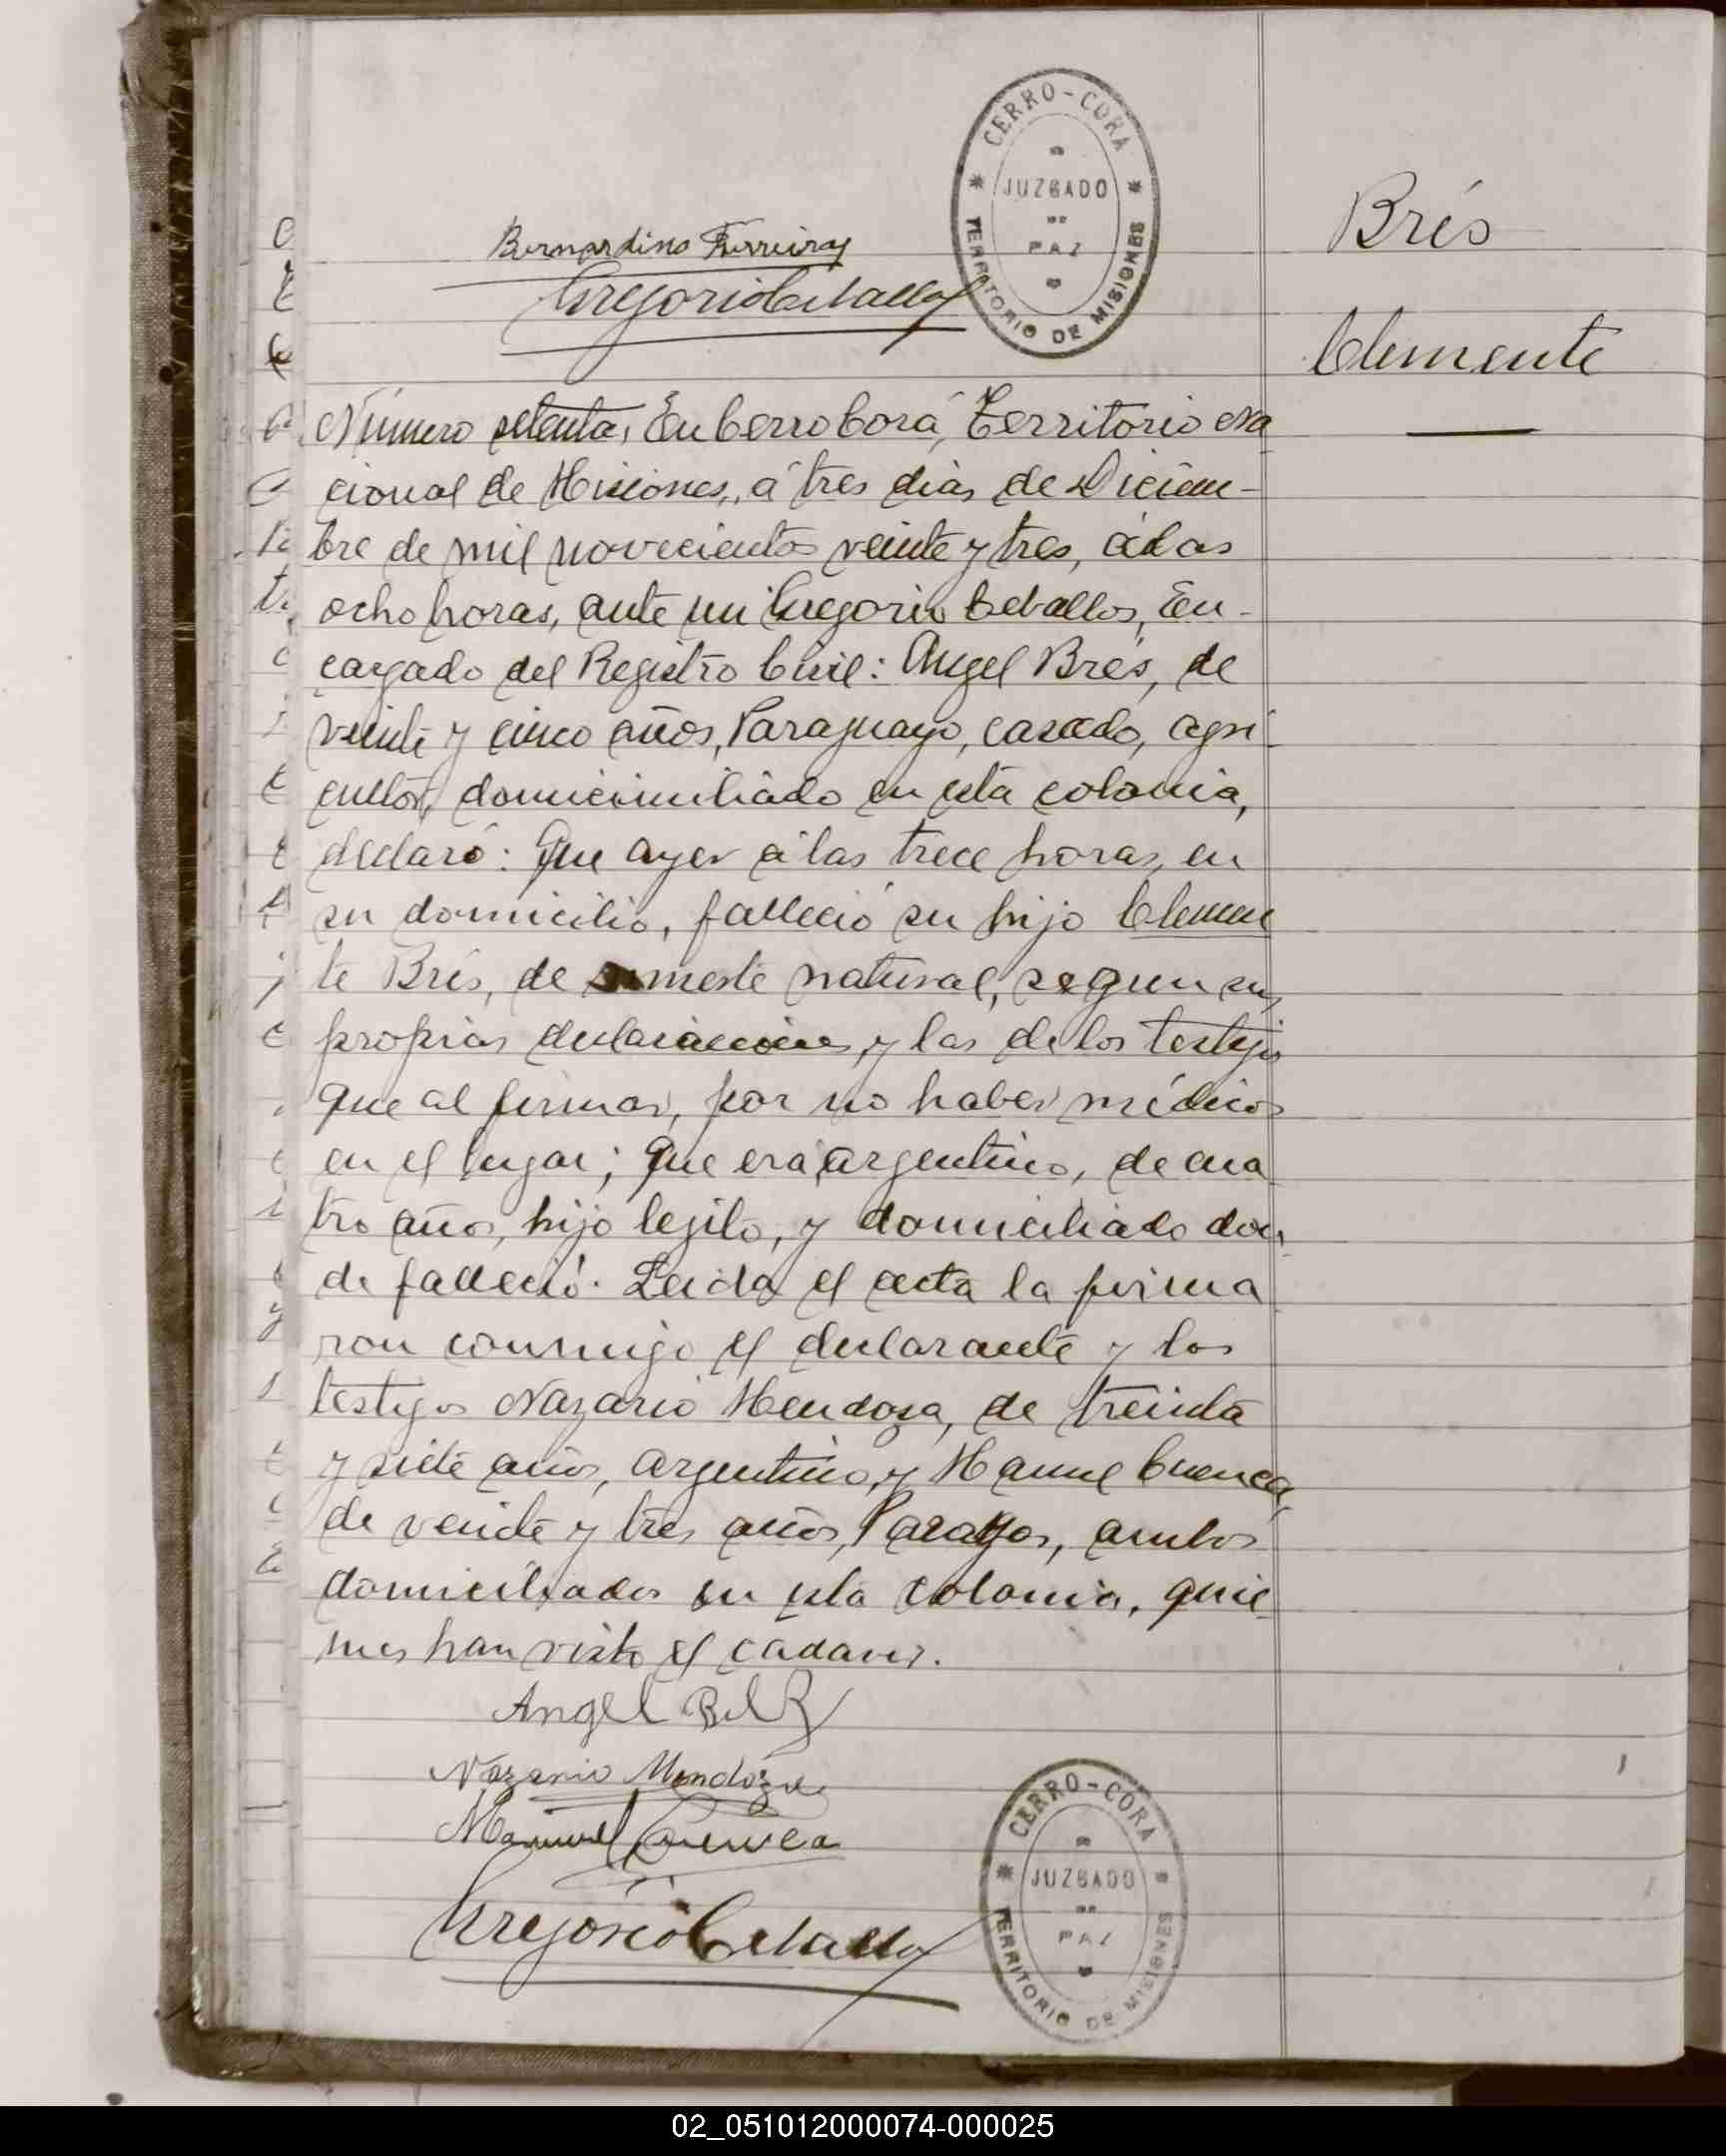 CERRO-CORA
JUZGADO
DE
PAZ
TERRITORIO DE MISIONES
Bernardino Ferreira
Gregorio Ceballos
Brés
Clemente
Número setenta, En Cerro Corá, Territorio Na
cional de Misiones, á tres dias de Diciem-
bre de mil novecientos veinte y tres, á las
ocho horas, ante mi Gregorio Ceballos, En-
cargado del Registro Civil: Angel Brés, de
veinte y cinco años, Paraguayo, casado, agri
cultor, domicimiliado en esta colonia,
declaró: Que ayer á las trece horas, en
su domicilio, falleció su hijo Clemen
te Brés, de muerte natural, segun sus
propias declaraciones, y las de los testigos
que al firmar, por no haber médicos
en el lugar; que era argentino, de cua
tro años, hijo legito, y domiciliado don
de falleció. Leida el acta la firma
ron conmigo el declarante y los
testigos Nazario Mendoza, de treinta
y siete años, argentino, y Manuel Cuenca,
de veinte y tres años, Paragyos, ambos
domiciliados en esta colonia, quie
nes han visto el cadaver.
Angel
Nazario Mendoza
Manuel Cuenca
Gregorio Ceballos
CERRO-CORA
JUZGADO
DE
PAZ
TERRITORIO DE MISIONES
02_051012000074-000025